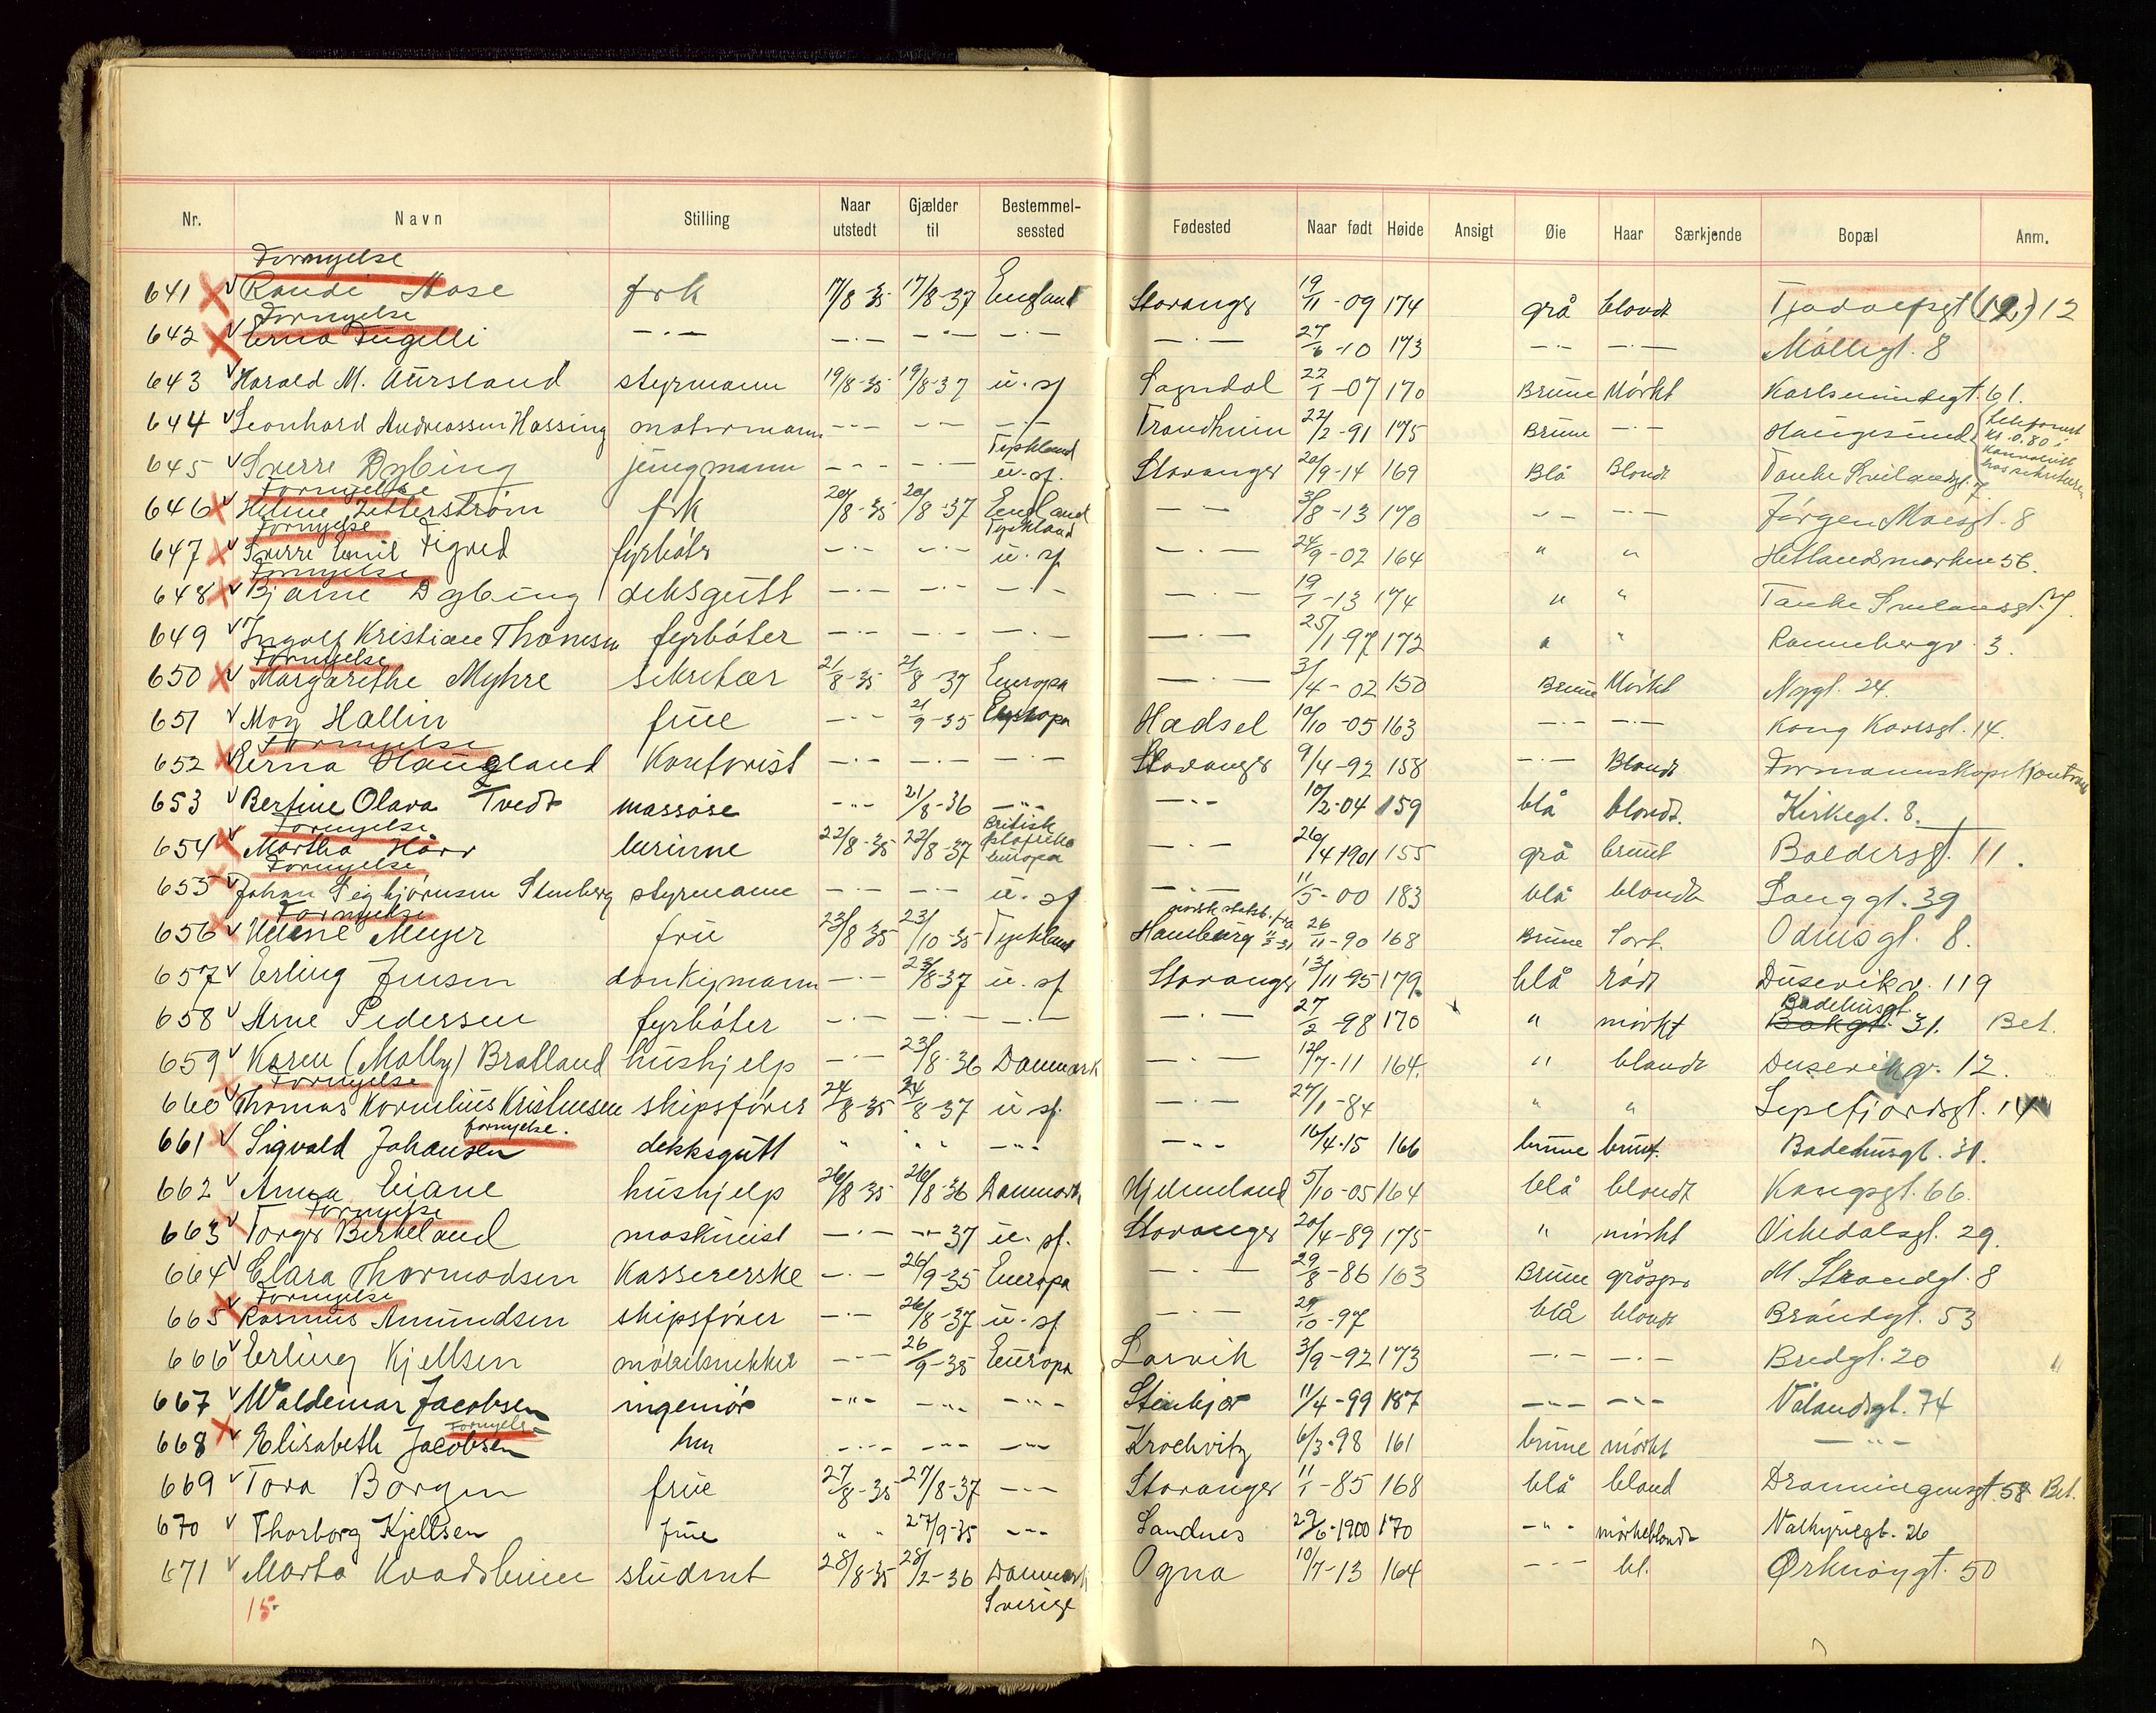 Nr. Navn Stilling Naar utstedt Gjælder til Bestemmelsessted Fødested Naar født Høide Ansigt Øie Haar Særkjende Bopæl Anm.
Fornyelse
641 Randi Aase frk 17/8-35 17/8-37 England Stavanger 19/11-09 174 grå blondt (12) 12
Fornyelse
642 Erna Fugelli -"- -"- -"- -"- -"- 27/6-10 173 -"- -"- Målligt. 8
643 Harald M. Aursland styrmann 19/8-35 19/8-37 u. sf Sogndal 22/1-07 170 Brune Mörkt Karlsminnegt. 61.
644 Leonhard Andreassen Hassing motormann -"- -"- -"- Trondheim 22/2-91 175 Brune -"- Haugesund
645 Sverre Dybing jungmann -"- -"- Tyskland u. sf. Stavanger 20/9-14 169 Blå Blondt Tanke Svilandsgt. 7
Fornyelse
646 Helene Zetterström frk 20/8-35 20/8-37 England -"- 3/8-13 170 -"- -"- Jörgen Moesgt. 8
Fornyelse
647 Sverre Emil Tigved fyrböter -"- -"- Tyskland u. sf -"- 24/9-02 164 " " Hetlandsmarken 56.
Fornyelse
648 Bjarne Dybing deksgutt -"- -"- -"- -"- 19/1-13 174 " " Tanke Svilandsgt. 7.
649 Ingolf Kristian Thomsen fyrböter -"- -"- -"- -"- 25/1-97 172 " " Rannebergv. 3.
Fornyelse
650 Margarethe Myhre sekretær 21/8-35 21/8-37 Europa -"- 3/4-02 150 Brune Mörkt Nygt. 24.
651 Moy Hallin frue -"- 21/9-35 Europa Hadsel 10/10-05 163 -"- -"- Kong Karlsgt. 14.
Fornyelse
652 Erna Haugland Kontorist -"- -"- -"- Stavanger 9/4-92 158 -"- Blondt Formannskapskontoret
653 Bertine Olava Tvedt massöse -"- 21/8-36 -"- -"- 10/2-04 159 blå blondt. Kirkegt. 8.
Fornyelse
654 Martha Hårr lærinne 22/8-35 22/8-37 Britisk Østafrika Europa -"- 26/4 1901 155 grå brunt Baldersgt. 11.
Fornyelse
655 Johan Sigbjörnsen Stenberg styrmann -"- -"- u. sf -"- 11/5-00 183 blå blondt Langgt. 39
Fornyelse
656 Helene Meyer frue 23/8-35 23/10-35 Tyskland norsk statsb. fra Hamburg 26/11-90 168 Brune Sort. Odinsgt. 8.
657 Erling Jensen donkeymann -"- 23/8-37 u. sf Stavanger 13/11-95 179 blå rödt Dusevikv. 119
658 Arne Pedersen fyrböter -"- -"- -"- -"- 27/2-98 170 " mörkt Bakgt. Badehusgt 31. Bet.
659 Karen (Molly) Bratland hushjelp -"- 23/8-36 Danmark -"- 12/7-11 164. " blondt Dusevikv. 12.
Fornyelse
660 Thomas Kornelius Kristensen skipsförer 24/8-35 24/8-37 u sf. -"- 27/1-84 " " Lysefjordsgt. 14
fornyelse.
661 Sigvald Johansen dekksgutt " " " -"- -"- 16/4-15 166 brune brunt. Badehusgt. 31.
662 Anna Eiane hushjelp 26/8-35 26/8-36 Danmark Hjelmeland 5/10-05 164 blå blondt Kongsgt. 66.
Fornyelse
663 Torger Berkeland maskinist -"- -"-37 u. sf. Stavanger 20/4-89 175 " mörkt Vikedalsgt. 29.
664 Clara Thormodsen Kassererske -"- 26/9-35 Europa -"- 29/8-86 163 Brune gråspr. M. Strandgt. 8
Fornyelse
665 Rasmus Amundsen skipsförer -"- 26/8-37 u. sf -"- 29/10-97 blå blondt Bröndgt. 53
666 Erling Kjellsen möbelsnekker -"- 26/9-35 Europa Larvik 3/9-92 173 -"- -"- Bredgt. 20 "
667 Waldemar Jacobsen ingeniör -"- -"- -"- Steinkjer 11/4-99 187 -"- -"- Vålandsgt. 74
Fornyelse
668 Elisabeth Jacobsen -"- -"- -"- 6/3-98 161 brune mörkt -"-
669 Tora Borgen frue 27/8-35 27/8-37 -"- Stavanger 11/1-85 168 blå blond Dronningensgt. 58 Bet.
670 Thorborg Kjellsen frue " " 27/9-35 -"- Sandnes 29/6-1900 170 -"- mörkeblondt Valkyriegt. 26
671 Marta Kvadsheim student 28/8-35 28/2-36 Danmark Sverige Ogna 10/7-13 164 -"- bl. Ørknöygt. 50
15-